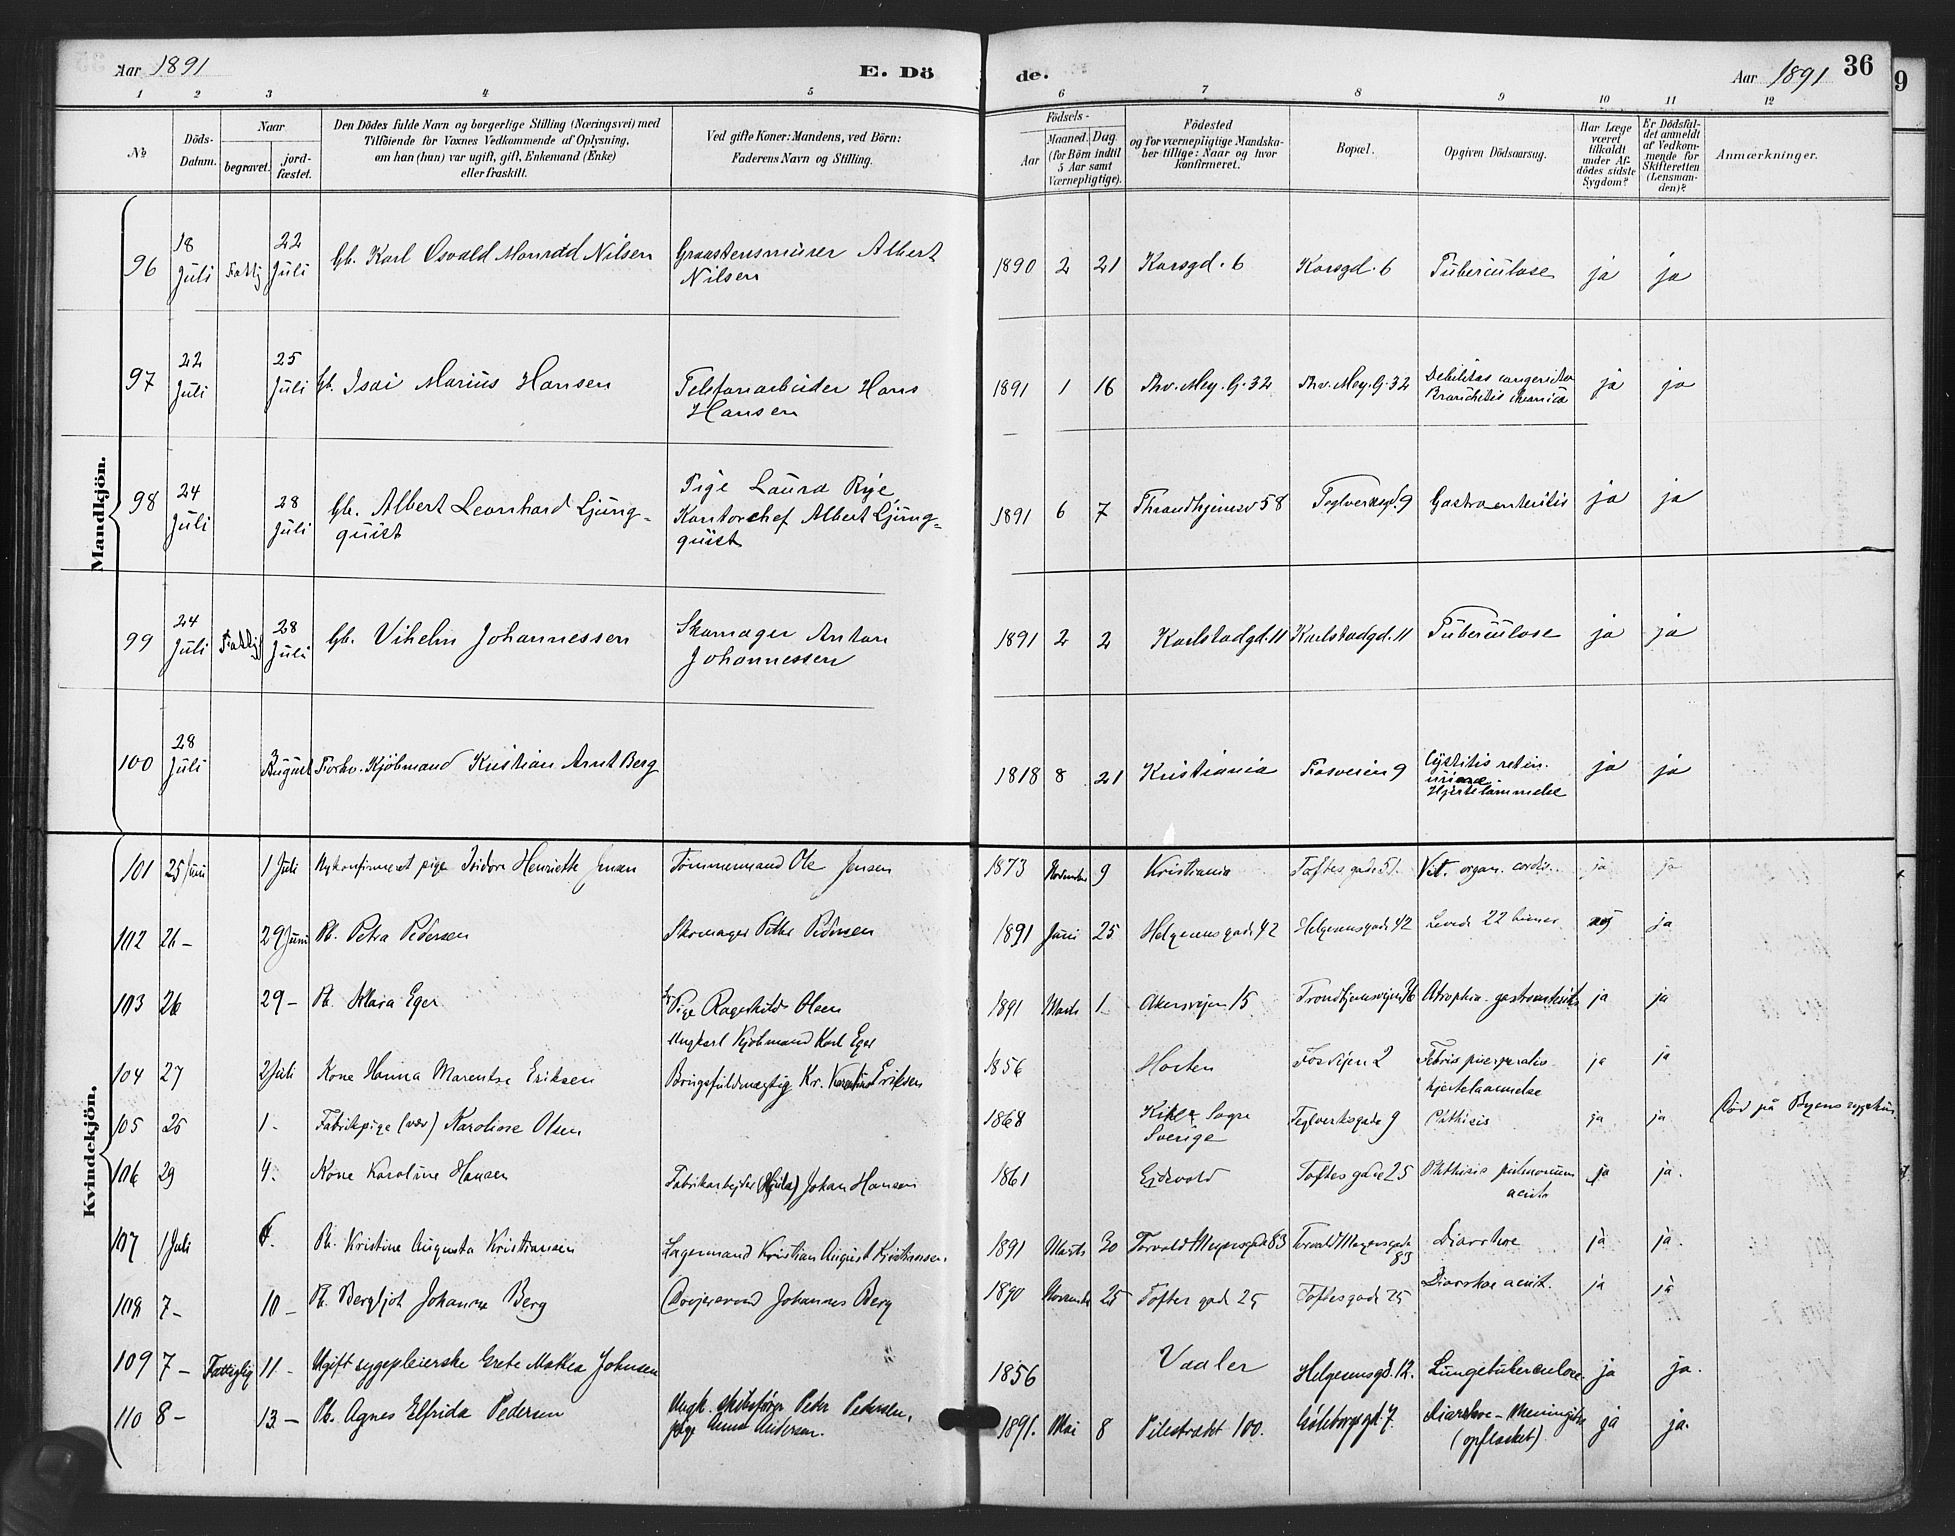 Aar 1891
E. Dö
de.
Aar 1891 36
9
1 2 3 4 5 6 7 8 9 10 11 12
№
Döds-
Datum.
Naar
begravet.
jord-
fæstet.
Den Dödes fulde Navn og borgerlige Stilling (Næringsvei) med
Tilföiende for Voxnes Vedkommende af Oplysning,
om han (hun) var ugift, gift, Enkemand (Enke)
eller fraskilt.
Ved gifte Koner: Mandens, ved Börn:
Faderens Navn og Stilling.
Födsels-
Aar
Maaned. Dag
(for Börn indtil
5 Aar samt
Værnepligtige).
Födested
og for værnepligtige Mandska-
ber tillige: Naar og hvor
konfirmeret.
Bopæl.
Opgiven Dödsaarsag.
Har Læge
været
tilkaldt
under Af-
dödes sidste
Sygdom?
Er Dödsfal-
det anmeldt
af Vedkom-
mende for
Skifteretten
(Lensman-
den)?
Anmærkninger.
Mandkjön.
96 18 Juli 22 Juli Gb. Karl Osvald Monrad Nilsen Graastensmurer Albert
Nilsen
1890 2 21 Korsgd. 6 Korsgd. 6 Tuberculose ja ja
97 22 Juli 25 Juli Gb. Isai Marius Hansen Telefonarbeider Hans
Hansen
1891 1 16 Thv. Mey. G. 32 Thv. Mey. G. 32 Debilitas
ja ja
98 24 Juli 28 Juli Gb. Albert Leonhard Ljung-
quist
Pige Laura Rye,
Kontorchef Albert Ljung-
quist
1891 6 7 Throndhjemsv 58 Teglverksgd. 9 Gastroenteritis ja ja
99 24 Juli Fattig 28 Juli Gb. Vihelm Johannessen Skomager Anton
Johannessen
1891 2 2 Karlstadgd. 11 Karlstadgd. 11 Tuberculose ja ja
100 28 Juli August Forhv. Kjöbmand Kristian Arnt Berg
1818 8 21 Kristiania Fosveien 9 Cystitis reten.
urinae
Hjertelammelse
ja ja
Kvindekjön.
101 25 Juni 1 Juli Nykonfirmeret pige Isidora Henriette Jensen Tömmermand Ole Jensen
1873 November 9 Kristiania Toftes gade 51. Vit. organ. cordis. ja ja
102 26 – 29 Juni Pb. Petra Pedersen Skomager Petter Pedersen
1891 Juni 25 Helgesens gade 42 Helgesensgade 42 Levede 22 timer nej ja
103 26 29 – Pb. Klara Eger Pige Ragnhild Olsen
Ungkarl Kjöbmand Karl Eger
1891 Marts 1 Akersvejen 15 Trondhjemsvejen 36 Atrophia. gastroenteritis ja ja
104 27 2 Juli Kone Hanna Marentse Eriksen Brugsfuldmægtig Kr. Eriksen
1856 Horten Fosvejen 2 Febris puerperalis
hjertelammelse
ja ja
105 25 1 – Fabrikpige (væv) Karoline Olsen
1868 Sogn
Sverige
Teglverksgade 9 Phthisis ja ja. Död på Byens sygehus
106 29 4. Kone Karoline Hansen Fabrikarbejder (Hjula) Johan Hansen
1861 Ejdsvold Toftes gade 25 Phthisis pulmonum
acuta
ja ja.
107 1 Juli 6. Pb. Kristine Augusta Kristiansen Lagermand Kristian August Kristiansen
1891 Marts 30 Torvald Meyersgade 83 Torvald Meyersgade
83
Diarrhoe ja ja.
108 7 – 10 – Pb. Bergljot Johanne Berg Johannes Berg
1890 November 25 Toftes gade 25 Toftesgade 25 Diarrhoe acut. ja ja
109 7 – Fattiglig 11 – Ugift sygepleierske Grete Mathea Johnsen
1856 Vaaler Helgesensgd. 12. Lungetuberculose. ja ja.
110 8 – 13 – Pb. Agnes Elfrida Pedersen Ungk. skibsförer Peter Pedersen,
pige Anna Andersen.
1891. Mai 8 Pilestrædet 100. Göteborgsgd. 7. Diarrhoe – Meningitis
(opflasket)
ja ja.